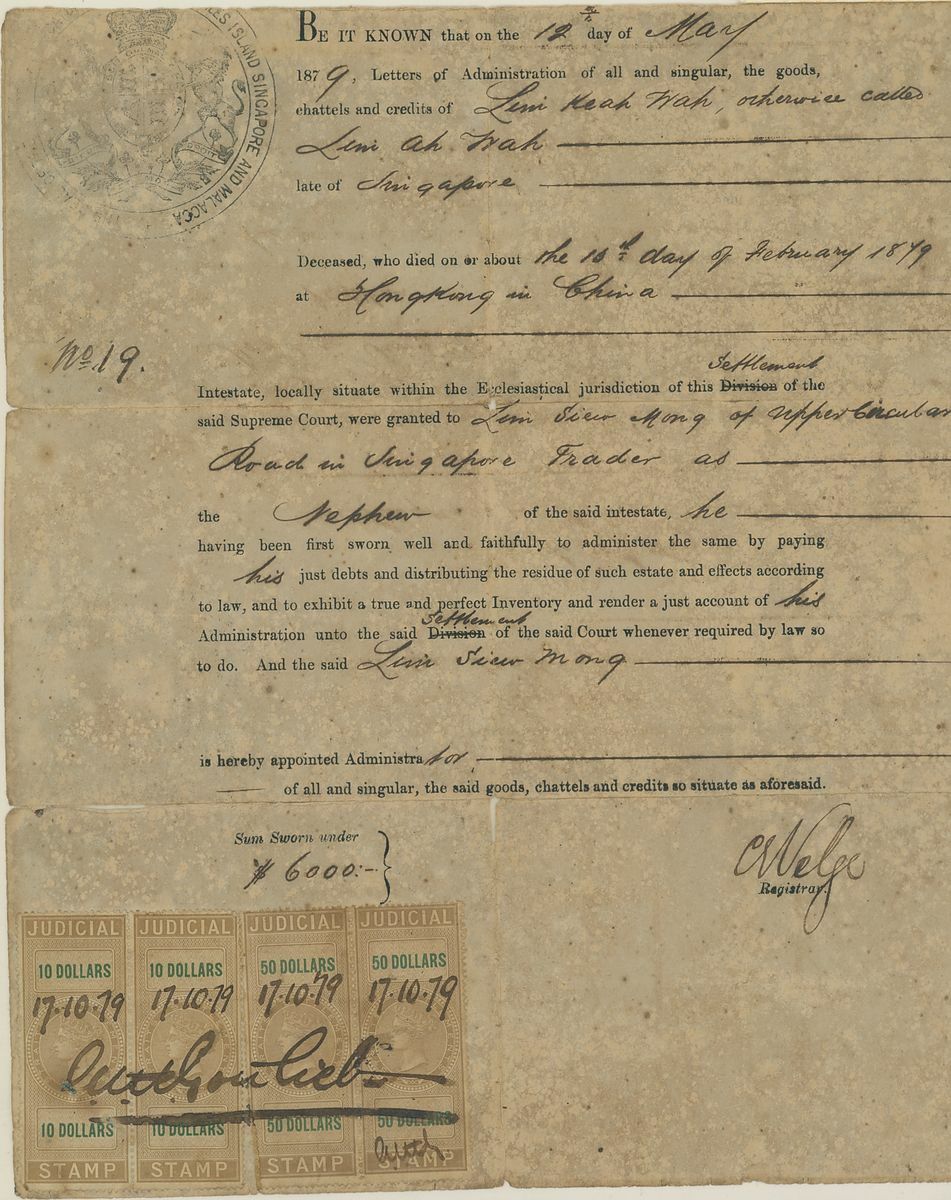 ISLAND SINGAPORE AND MALACCA
BE IT KNOWN that on the 12th day of May
1879, Letters of Administration of all and singular, the goods,
chattels and credits of Lim Keah Wah, otherwise called
Lim Ah Wah
late of Singapore
Deceased, who died on or about the 10th day of February 1879
at Hongkong in China
No. 19.
Settlement
Intestate, locally situate within the Ecclesiastical jurisdiction of this Division of the
said Supreme Court, were granted to Lim Siew Mong of Upper Circular
Road in Singapore Trader as
the Nephew of the said intestate, he
having been first sworn well and faithfully to administer the same by paying
his just debts and distributing the residue of such estate and effects according
to law, and to exhibit a true and perfect Inventory and render a just account of his
Settlement
Administration unto the said Division of the said Court whenever required by law so
to do. And the said Lim Siew Mong
is hereby appointed Administrator
of all and singular, the said goods, chattels and credits so situate as aforesaid.
Sum Sworn under
$ 6000:-
Registrar.
JUDICIAL JUDICIAL JUDICIAL JUDICIAL
10 DOLLARS 10 DOLLARS 50 DOLLARS 50 DOLLARS
17.10.79 17.10.79 17.10.79 17.10.79
10 DOLLARS 10 DOLLARS 50 DOLLARS 50 DOLLARS
STAMP STAMP STAMP STAMP